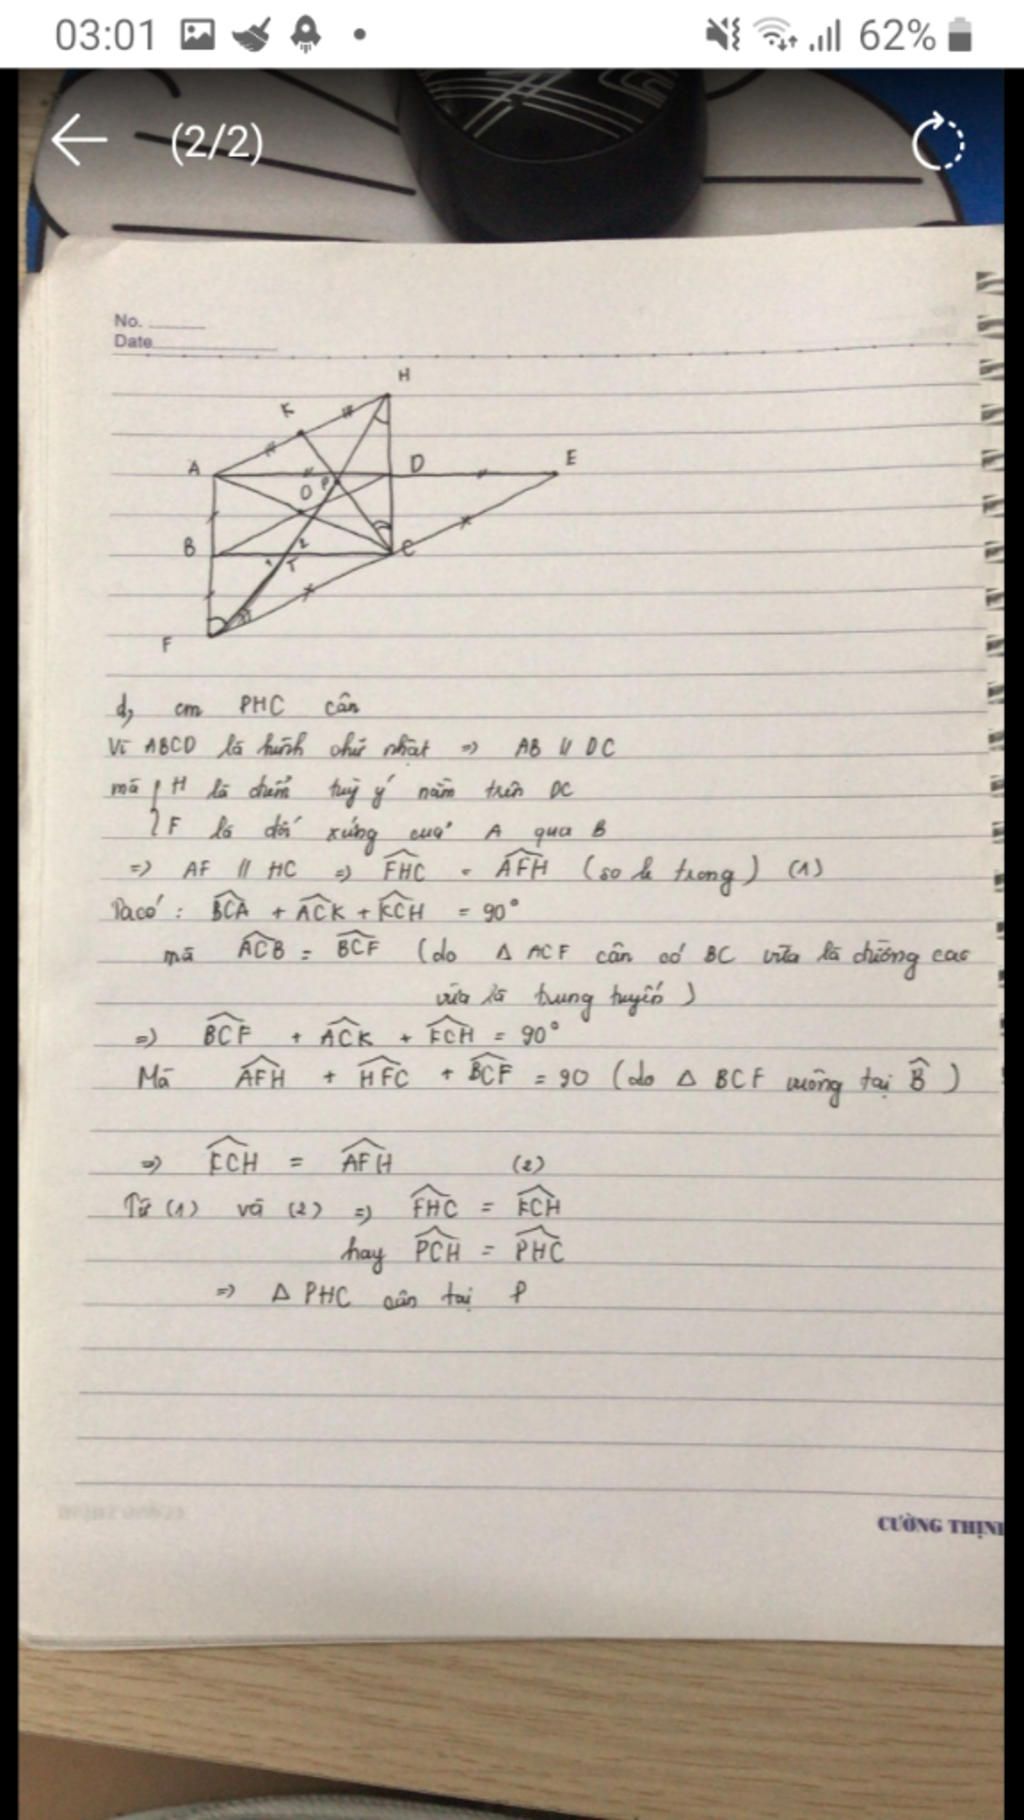 03:01
62%
(2/2)
No.
Date
H
K
A
D
E
O
P
B
C
2
1
T
F
d, cm PHC cân
Vì ABCD là hình chữ nhật => AB // DC
mà { H là điểm tuỳ ý nằm trên DC
{ F là đối xứng của A qua B
=> AF // HC => FHC = AFH (so le trong) (1)
Ta có : BCA + ACK + KCH = 90°
mà ACB = BCF (do Δ ACF cân có BC vừa là đường cao
vừa là trung tuyến)
=> BCF + ACK + KCH = 90°
Mà AFH + HFC + BCF = 90 (do Δ BCF vuông tại B)
=> KCH = AFH (2)
Từ (1) và (2) => FHC = KCH
hay PCH = PHC
=> Δ PHC cân tại P
CƯỜNG THỊN